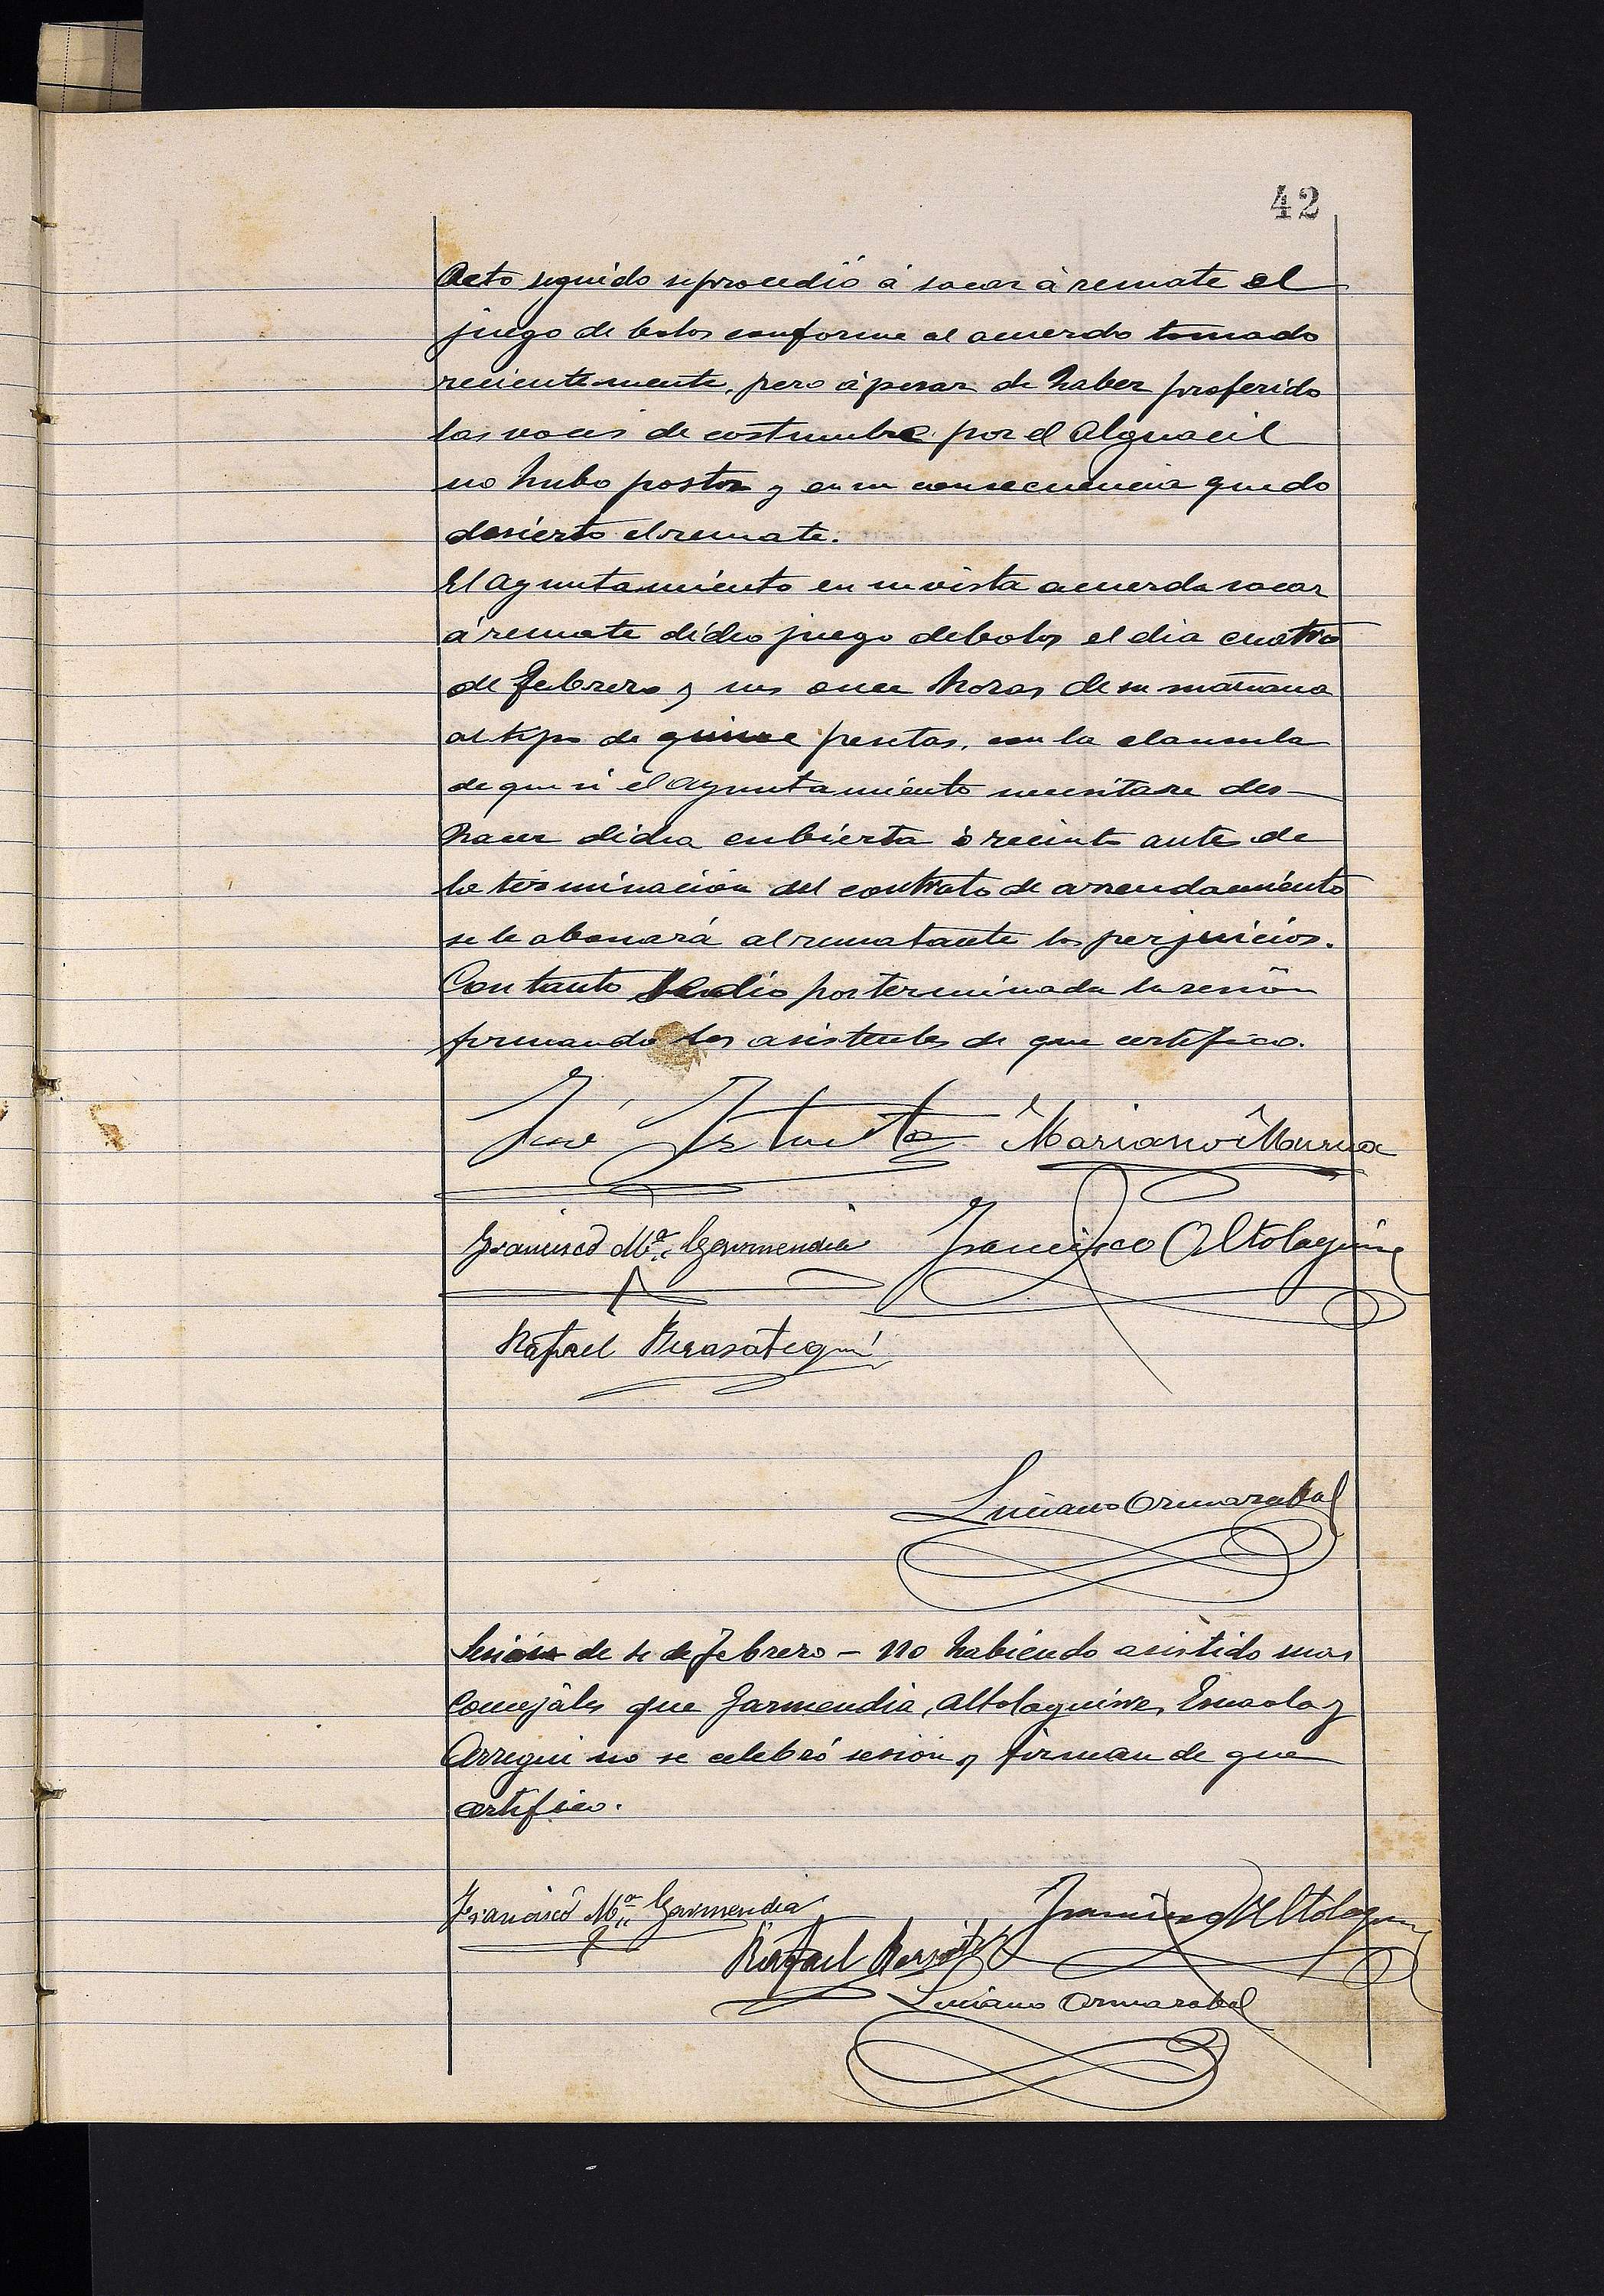 42
Acto seguido se procedió á sacar á remate el
juego de bolos conforme al acuerdo tomado
recientemente, pero á pesar de haber proferido
las voces de costumbre por el Alguacil
no hubo postor y en su consecuencia quedo
desierto el remate.
El Ayuntamiento en su vista acuerda sacar
á remate dicho juego de bolos el dia cuatro
de Febrero y sus once horas de su mañana
al tipo de quince pesetas, con la clausula
de que si el Ayuntamiento necesitare des-
hacer dicha cubierta ó recinto antes de
la terminación del contrato de arrendamiento
se le abonará al rematante los perjuicios.
Con tanto se dio por terminada la sesión
firmando los asistentes de que certifico.
José Mariano Murua
Francisco Mª Garmendia Francisco Altolaguirre
Rafael Berasategui
Luciano Ormazabal
Sesión de 4 de Febrero - No habiendo asistido mas
Concejales que Garmendia, Altolaguirre, y
Arregui no se celebró sesion y firman de que
certifico.
Francisco Mª Garmendia Francisco Altolaguirre
Rafael
Luciano Ormazabal